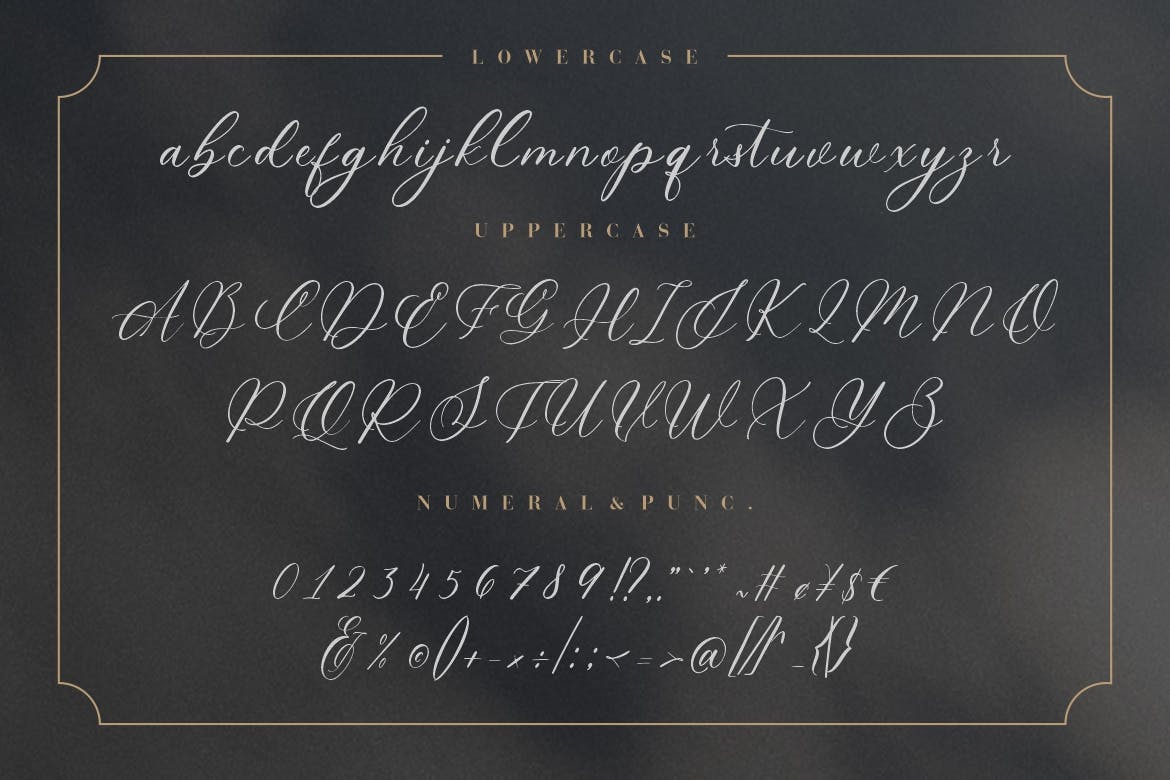 LOWERCASE
abcdefghijklmnopqrstuvwxyzr
UPPERCASE
ABCDEFGHIJKLMNO
PQRSTUVWXYZ
NUMERAL & PUNC.
0123456789!?,."`'*~#¢¥$€
&%©()+-×÷/:;<=>@[]^_{}